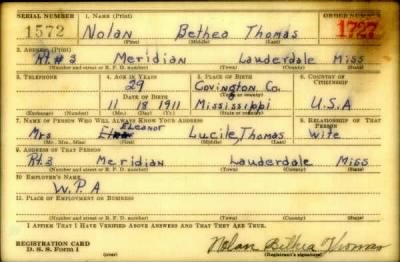 SERIAL NUMBER 1. NAME (Print) ORDER NUMBER
1572 Nolan Bethea Thomas 1727
(First) (Middle) (Last)
2. ADDRESS (Print)
Rt. # 3 Meridian Lauderdale Miss
(Number and street or R. F. D. number) (Town) (County) (State)
3. TELEPHONE 4. AGE IN YEARS 5. PLACE OF BIRTH 6. COUNTRY OF CITIZENSHIP
29 Covington Co.
(Town or county)
DATE OF BIRTH
11 18 1911 Mississippi U.S.A
(Exchange) (Number) (Mo.) (Day) (Yr.) (State or country)
7. NAME OF PERSON WHO WILL ALWAYS KNOW YOUR ADDRESS 8. RELATIONSHIP OF THAT PERSON
Eleanor
Mrs Lucile, Thomas Wife
(Mr., Mrs., Miss) (First) (Middle) (Last)
9. ADDRESS OF THAT PERSON
Rt. 3 Meridian Lauderdale Miss
(Number and street or R. F. D. number) (Town) (County) (State)
10. EMPLOYER'S NAME
W.P.A
11. PLACE OF EMPLOYMENT OR BUSINESS
(Number and street or R. F. D. number) (Town) (County) (State)
I AFFIRM THAT I HAVE VERIFIED ABOVE ANSWERS AND THAT THEY ARE TRUE.
REGISTRATION CARD
D. S. S. Form 1 (over) Nolan Bethea Thomas
(Registrant's signature)